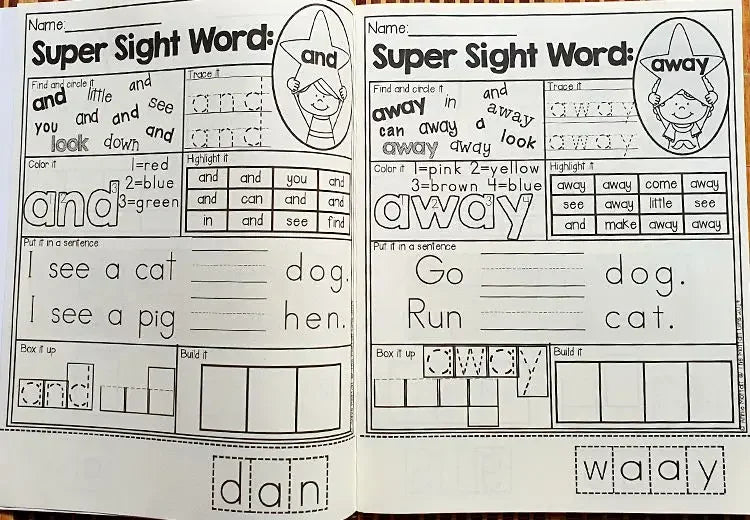 Name:
Super Sight Word:
and
Find and circle it
and
little
and
see
you
and
and
and
look
down
Trace it
and
and
Color it
1=red
2=blue
3=green
and
1
2
3
Highlight it
and and you and
and can and and
in and see find
Put it in a sentence
I see a cat dog.
I see a pig hen.
Box it up
and
Build it
d a n
Name:
Super Sight Word:
away
Find and circle it
away
in
and
away
can
away
a
look
away
away
Trace it
away
away
Color it 1=pink 2=yellow
3=brown 4=blue
away
2
3
4
Highlight it
away away come away
see away little see
and make away away
Put it in a sentence
Go dog.
Run cat.
Box it up
away
Build it
w a a y